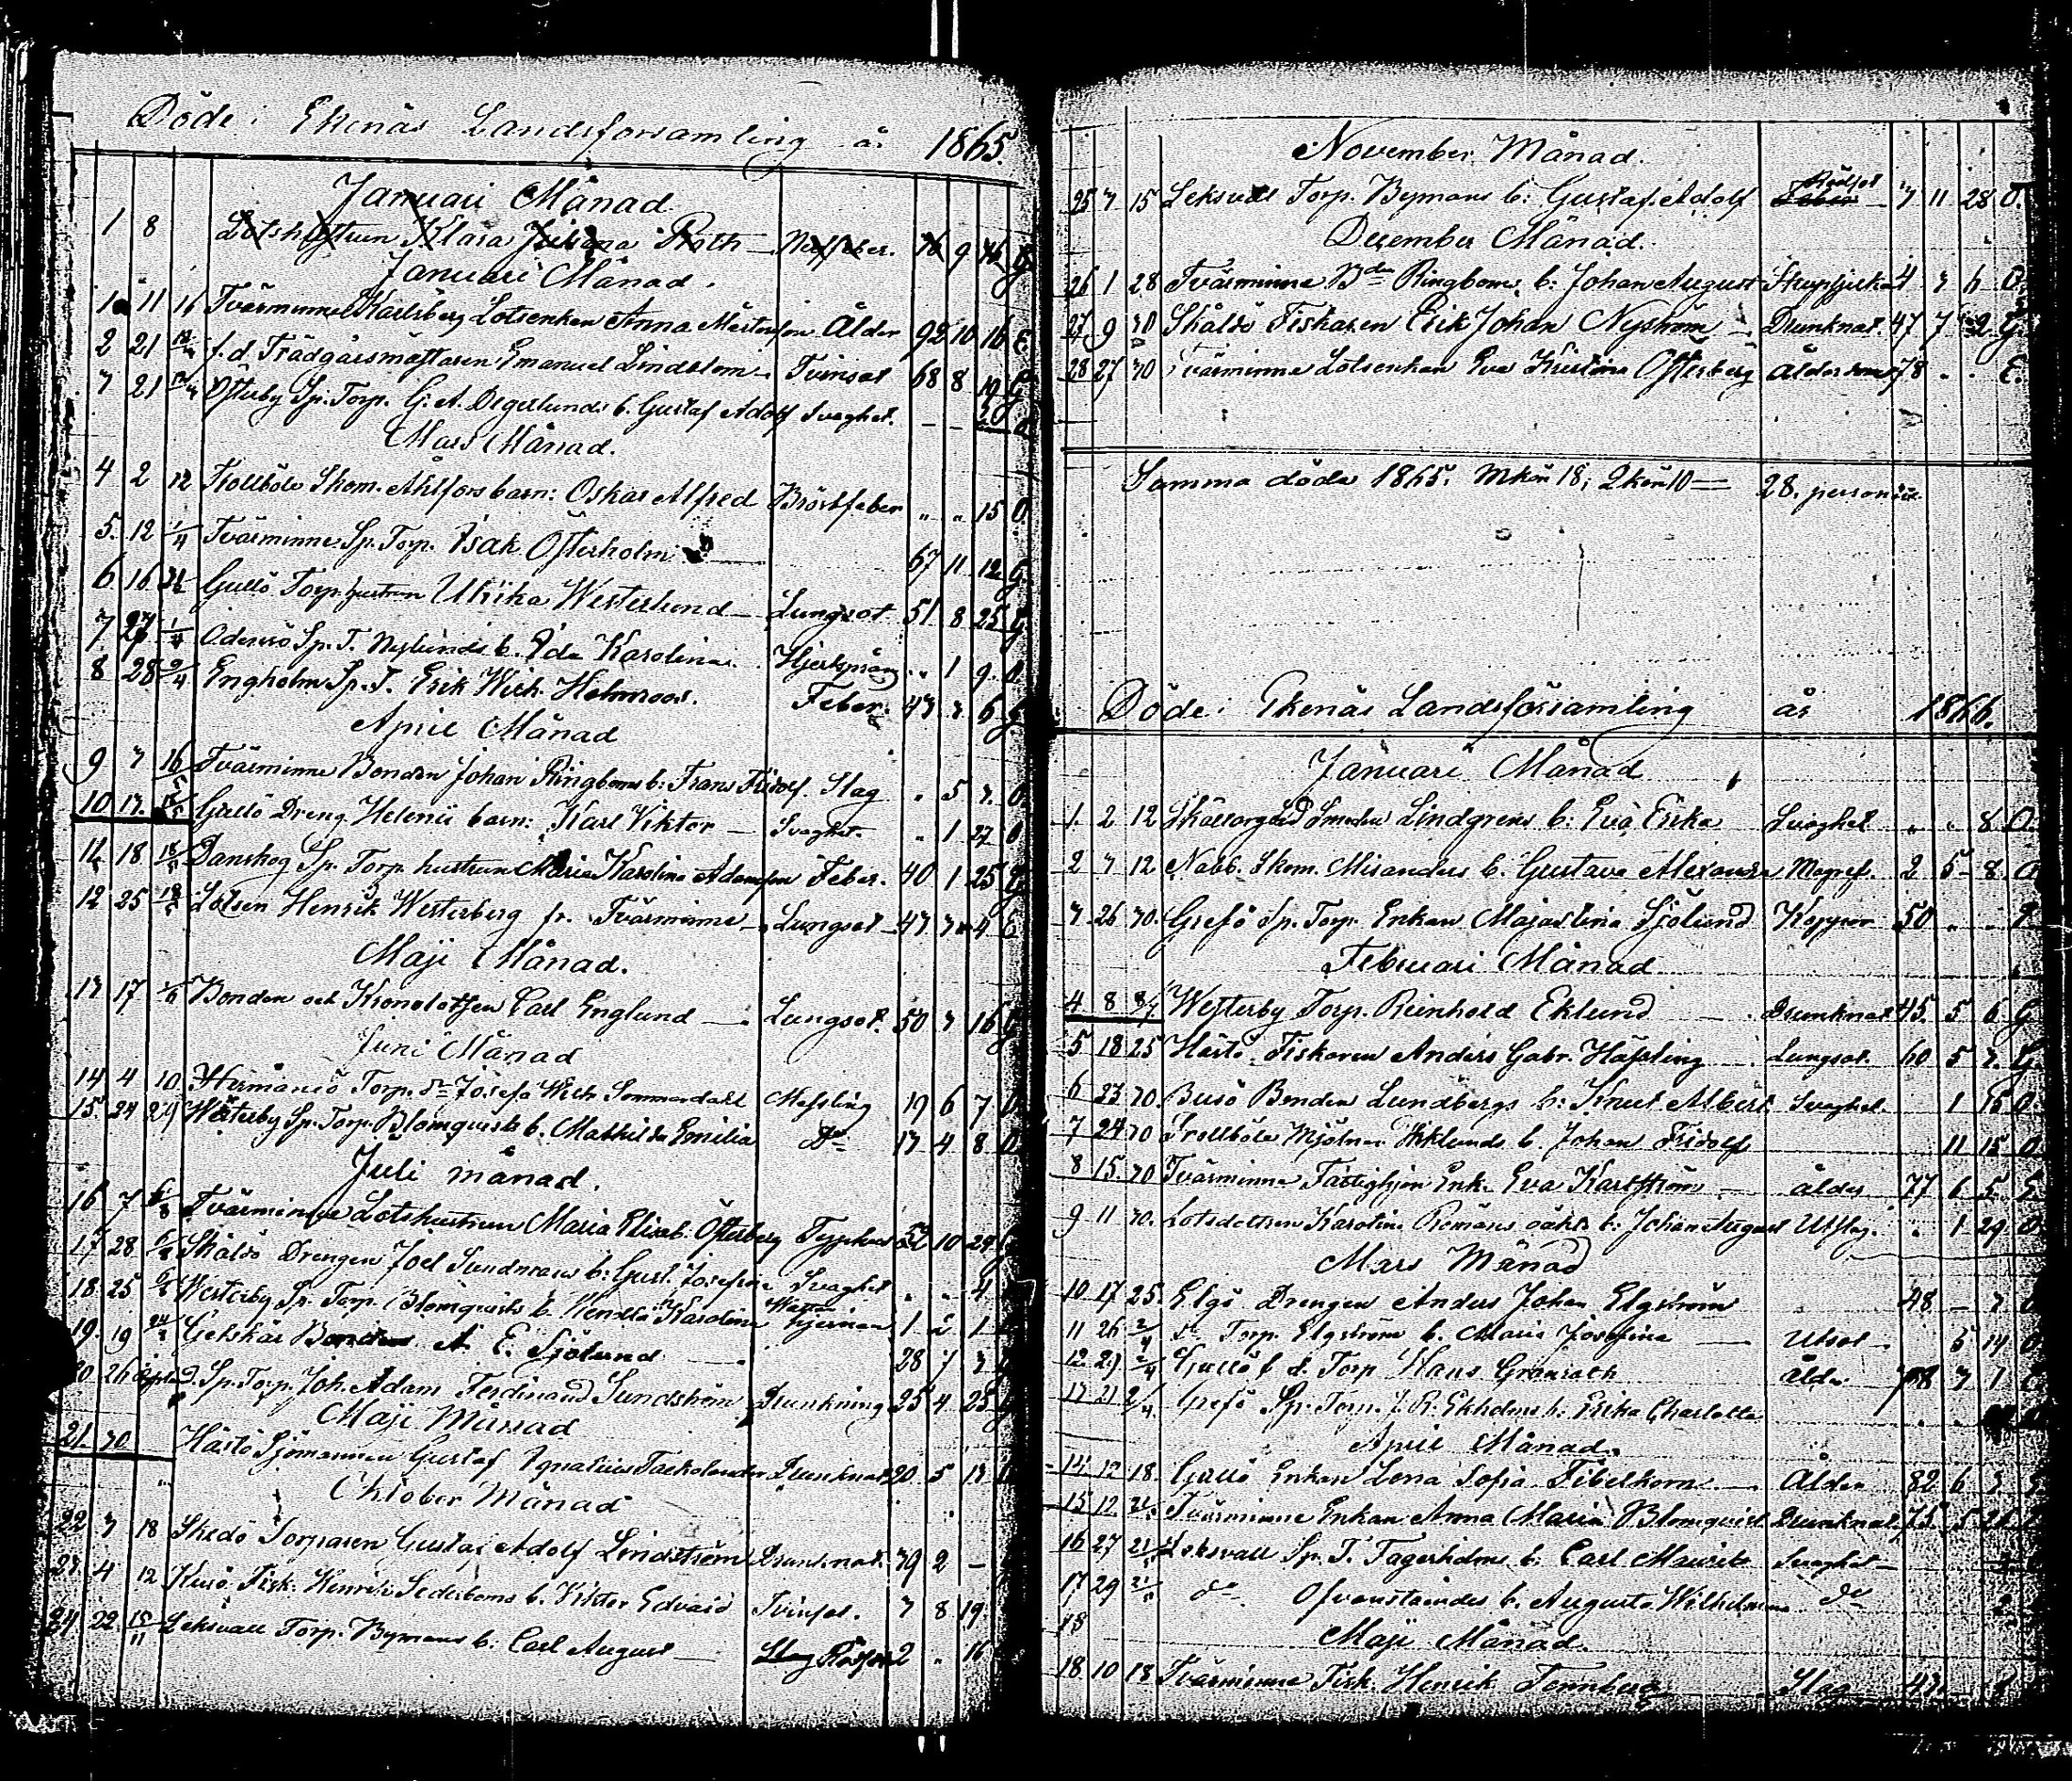 Döde i Ekenäs Landsförsamling år 1865.
Januari Månad
1 8 Lotshustrun Klara Juliana Roth 9
Januari Månad.
1 11 16 Tvärminne Karlsberg Lotsenkan Anna Ålder 92 10 16 E.
2 21 f.d. Trädgårsmästaren Emanuel Lindblom Tvinsot 68 8 19 G
3 21 Österby Sp. Torp. G. A. Degerlunds b. Gustaf Adolf Svaghet.
Mars Månad.
4 2 12 Trollböle Skom. Ahlfors barn: Oskar Alfred Bröstfeber " " 15 O.
5. 12 1/4 Tvärminne Sp. Torp. Isak Österholm 67 11 12 G.
6 16 Gullö Torp. hustrun Ulrika Westerlund Lungsot 51 8 25 G
7 27 1/4 Odensö Sp. T. Nylunds b. Ida Karolina " 1 9 O
8 28 2/4 Engholm Sp. T. Erik Wilh. Holmroos. Feber. 43 3 6 G
April Månad
9 3 16/5 Tvärminne Bonden Johan Ringboms b: Frans Fridolf Slag " 5 3 O
10 13. Gullö Dreng Helenii barn: Karl Viktor Svaghet. " 1 27 O
11 18 18/5 Danskog Sp. Torp. hustrun Maria Karolina Adamsson Feber. 40 1 25 G
12 25 18/5 Lotsen Henrik Westerberg fr. Tvärminne Lungsot 43 3 4 G
Maji Månad.
13 17 1/6 Bonden och Kronolotsen Carl Englund Lungsot. 50 3 16 G
Juni Månad
14 4 10 Hermansö Torp. Josefa Wilh. Sommardahl Messling 19 6 7 O
15. 24 29 Westerby Sp. Torp. Blomqvists b. Mathilda Emilia Do 13 4 8 O
Juli månad.
16 7 6/8 Tvärminne Lotshustrun Maria Elisab. Österberg 10 29 G
17 28 6/8 Skåldö Drengen Joel Sundmans b: Gust. Josefina Svaghet " " 4
18. 25 6/8 Westerby Sp. Torp. Blomqvists b. Hendla Karolina Watten hjernan 1 2 1
19. 19 Getskär Bonden A. E. Sjölund 28 7 3 G
20 26 Sp. Torp. Joh. Adam Ferdinand Sundström Drunkning 25 4 23 G
Maji Månad
21. 30 Hästö Sjömannen Gustaf Ignatius Tackolander Drunknat 20 5 13
Oktober Månad
22 3 18 Skedö Torparen Gustaf Adolf Lindström Drunknat. 39 2 —
23. 4 12 Kusö Fisk. Henrik Sederboms b. Viktor Edvard Tvinsot. 3 8 19
24 22. 15/11 Leksvall Torp. Bymans b. Carl August 2 " 16
November Månad.
25 3 15 Leksvall Torp. Bymans b: Gustaf Adolf Rödsot 3 11 28 O.
December Månad.
26 1 28 Tvärminne Bden Ringboms b: Johan August 4 3 6 O.
27 9 30 Skåldö Fiskaren Erik Johan Nyström Drunknat. 47 7 2 G
28 27 30 Tvärminne Lotsenkan Eva Kristina Österberg Ålderdom 78 " " E.
Summa döda 1865. Mkön 18; Qkön 10 = 28. personer
Döde i Ekenäs Landsförsamling år 1866.
Januari Månad
1. 2 12 Skällargård Smeden Lindgrens b: Eva Erika Svaghet " " 8 O.
2 3 12 Nabb. Skom. Misanders b. Gustava Alexandra Magref. 2 5 8. O
3 26 30. Grefö Sp. Torp. Enkan Majastina Sjölund Koppor 50 " " E
Februari Månad
4 8 Westerby Torp. Reinhold Eklund Drunknat 45. 5 6 G
5 18 25 Hästö Fiskaren Anders Gabr. Hässling Lungsot. 60 5 3. G.
6 23 30. Busö Bonden Lundbergs b: Knut Albert Svaghet. 1 15 O.
7 24 30 Trollböle Mjölnar Wiklunds b. Johan Fridolf 11 15 O.
8 15. 30 Tvärminne Fattighjon Enk. Eva Karlström Ålder 77 6 5 E
9 11 30. Lotsdottren Karolina Remans oäkt. b. Johan August Utslag. " 1 29 O.
Mars Månad
10 17 25 Elgö Drengen Anders Johan Elgström 48 — 3 O
11 26 2/4 do Torp. Elgström b. Maria Josefina Utsot " 5 14 O
12. 29 2/4 Gullö f. d. Torp. Hans Grönroth Ålder 78 3 1
13 21 2/4 Grefö Sp. Torp. J. R. Ekholms b: Erika Charlotta
April Månad.
14. 12 18. Gullö Enkan Lena Sofia Fibelkorn Ålder 82 6 3 E
15 12. Tvärminne Enkan Anna Maria Blomqvist Drunknat. 73 5
16 27 Leksvall Sp. T. Fagerholms b: Carl Maurits Svaghet
17 29 do Ofvanståndes b. Augusta Wilhelmina do
18
Maji Månad.
18 10 18 Tvärminne Fisk. Henrik Tennberg Slag 43.